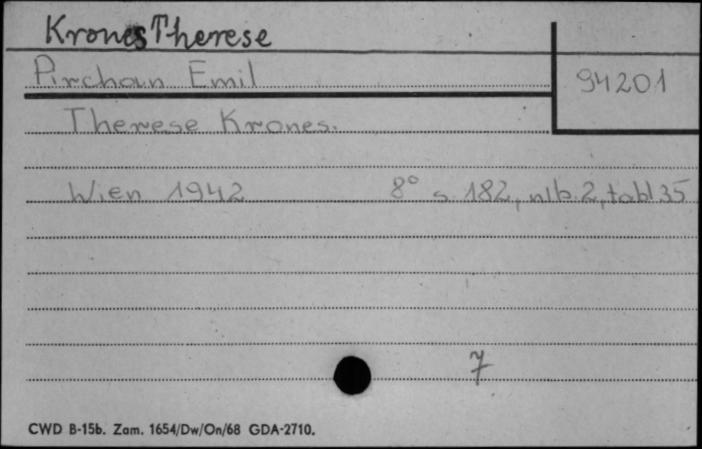 Krones Therese
Pirchan Emil
94201
Therese Krones.
Wien 1942 8° s. 182, nlb. 2, tabl 35
7
CWD B-15b. Zam. 1654/Dw/On/68 GDA-2710.